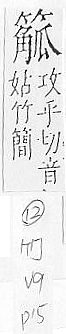 攻乎切音
姑竹簡
⑫
竹
V9
P'15